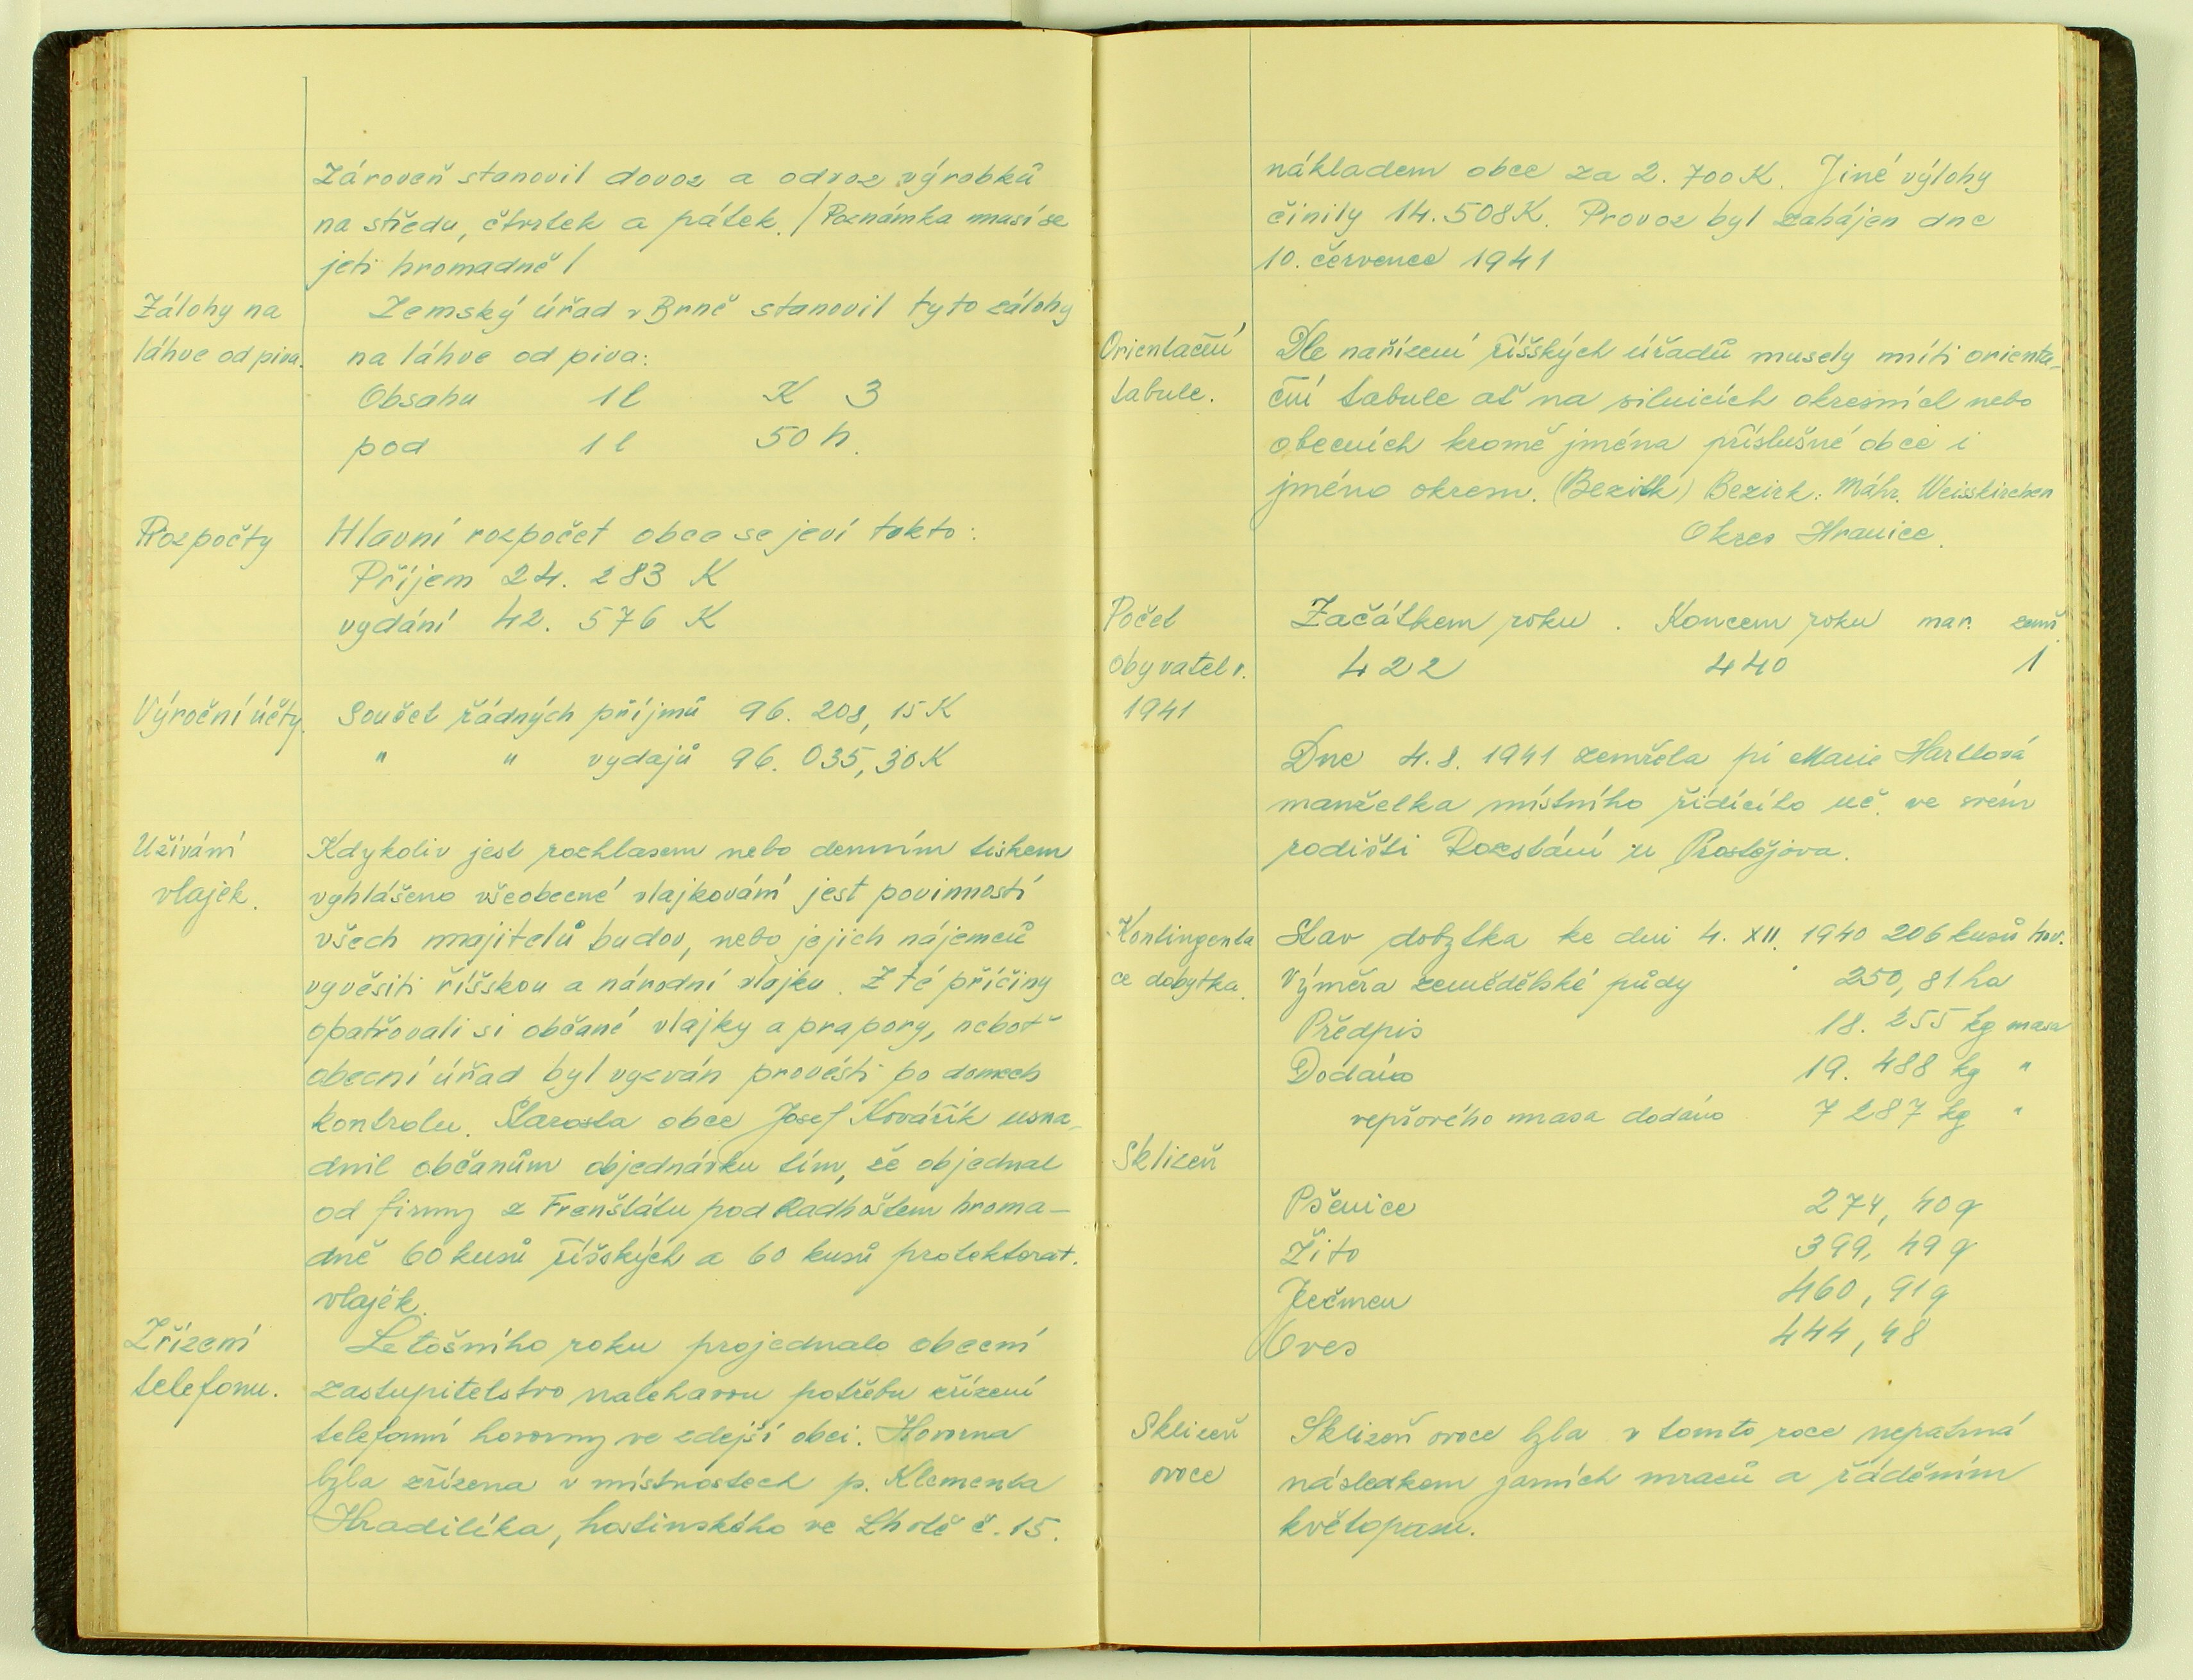 Zároveň stanovil dovoz a odvoz výrobků
na středu, čtvrtek a pátek. /Poznámka musí se
jeti hromadně/
Zálohy na
láhve od piva.
Zemský úřad v Brně stanovil tyto zálohy
na láhve od piva:
Obsahu 1 l K 3
pod 1 l 50 h.
Rozpočty
Hlavní rozpočet obce se jeví takto:
Příjem 24. 283 K
vydání 42. 576 K
Výroční účty.
Součet řádných příjmů 96. 208, 15 K
" " vydajů 96. 035, 30 K
Užívání
vlajek.
Kdykoliv jest rozhlasem nebo denním tiskem
vyhlášeno všeobecné vlajkování jest povinností
všech majitelů budov, nebo jejich nájemců
vyvěsiti říšskou a národní vlajku. Z té příčiny
opatřovali si občané vlajky a prapory, neboť
obecní úřad byl vyzván provésti po domech
kontrolu. Starosta obce Josef Kovářík usna-
dnil občanům objednávku tím, že objednal
od firmy z Frenštátu pod Radhoštem hroma-
dně 60 kusů říšských a 60 kusů protektorat.
vlajek.
Zřízení
telefonu.
Letošního roku projednalo obecní
zastupitelstvo nalehavou potřebu zřízení
telefonní hovorny ve zdejší obci. Hovorna
byla zřízena v místnostech p. Klementa
Hradilíka, hostinského ve Lhotě č. 15.
nákladem obce za 2. 700 K. Jiné výlohy
činily 14. 508 K. Provoz byl zahájen dne
10. července 1941
Orientační
tabule.
Dle nařízení říšských úřadů musely míti orienta-
ční tabule ať na silnicích okresních nebo
obecních kromě jména příslušné obce i
jméno okresu. (Bezirk) Bezirk: Mähr. Weisskirchen
Okres Hranice.
Počet
obyvatel r.
1941
Začátkem roku. Koncem roku nar. zemř.
422 440 1
Dne 4. 8. 1941 zemřela pí Marie Hartlová
manželka místního řídícího uč. ve svém
rodišti Rozstání u Prostějova.
Kontingenta
ce dobytka.
Stav dobytka ke dni 4. XII. 1940 206 kusů hov.
Výměra zemědělské půdy 250, 81 ha
Předpis 18. 255 kg masa
Dodáno 19. 488 kg "
vepřového masa dodáno 7 287 kg "
Sklizeň
Pšenice 274, 40 q
Žito 399, 49 q
Ječmen 460, 91 q
Oves 444, 48
Sklizeň
ovoce
Sklizeň ovoce byla v tomto roce nepatrná
následkem jarních mrazů a řáděním
květopasu.